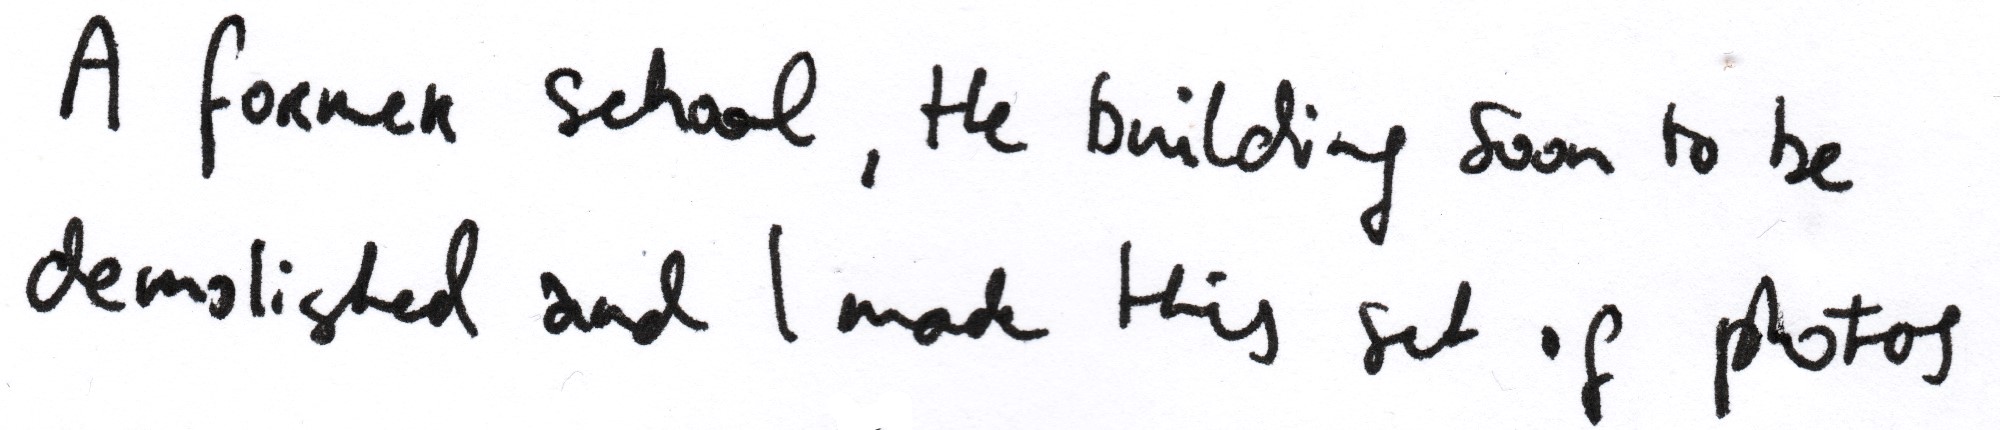 A former school, the building soon to be
demolished and I made this set of photos